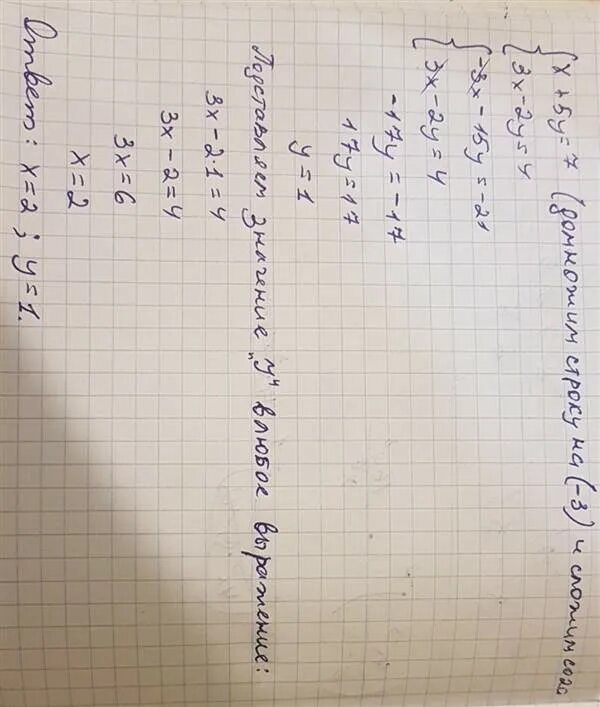 { x + 5y = 7 (домножим строку на (-3) и сложим со 2ой
{ 3x - 2y = 4
{ -3x - 15y = -21
{ 3x - 2y = 4
-17y = -17
17y = 17
y = 1
Подставляем значение "y" в любое выражение:
3x - 2·1 = 4
3x - 2 = 4
3x = 6
x = 2
Ответ: x = 2 ; y = 1.